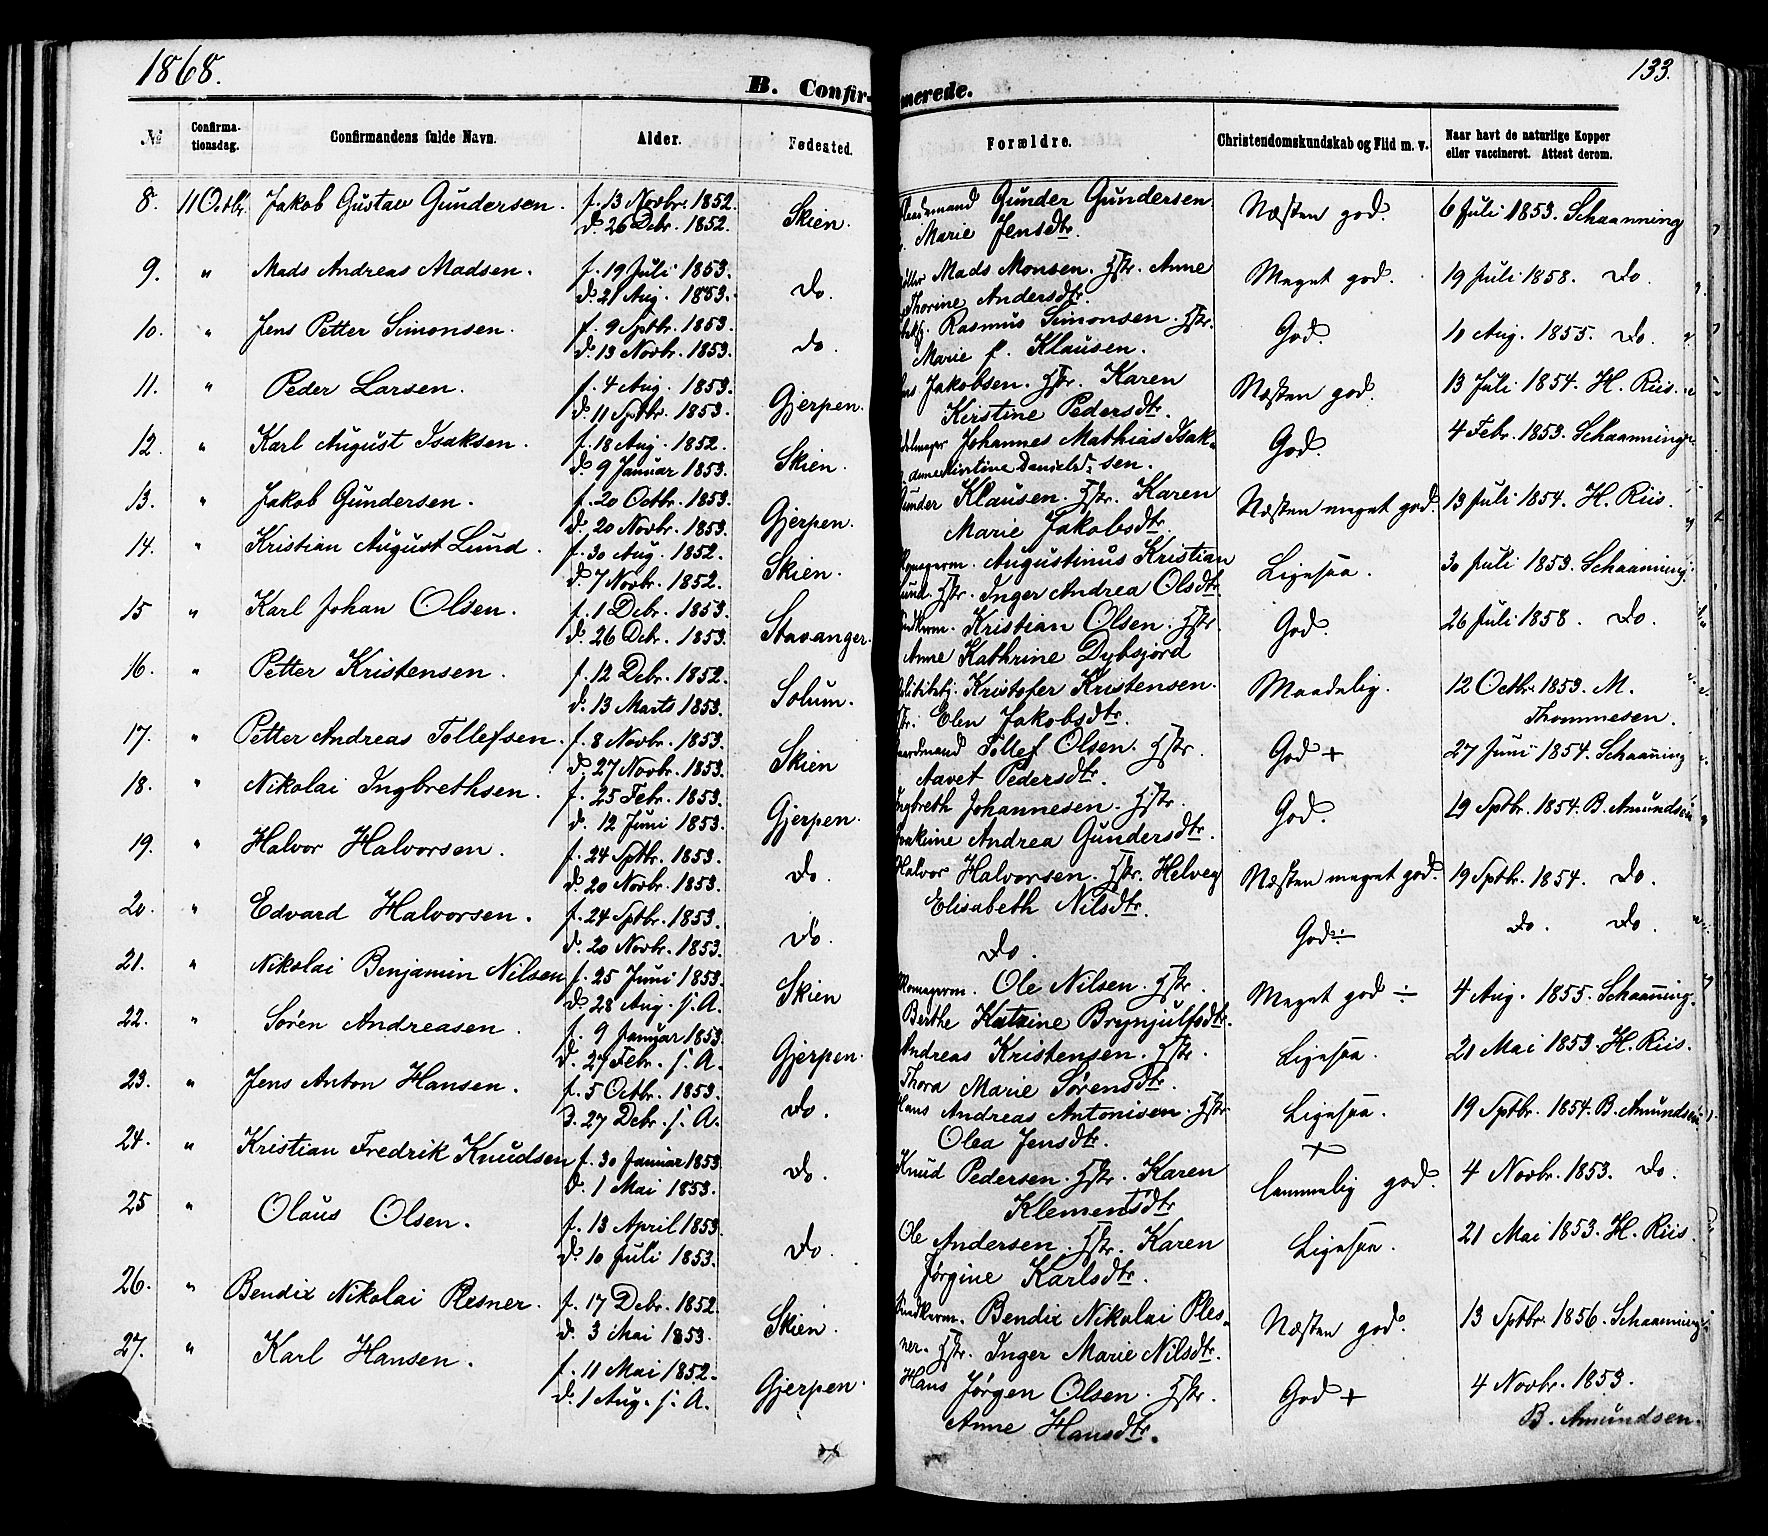 1868.
133.
B. Confir-
merede.
№ Confirma-tionsdag. Confirmandens fulde Navn. Alder. Fødested. Forældre. Christendomskundskab og Flid m. v. Naar havt de naturlige Kopper eller vaccineret. Attest derom.
8. 11 Octbr. Jakob Gustav Gundersen. f. 13 Novbr. 1852. Skien. Gunder Gundersen Næsten god. 6 Juli 1853. Schaanning
d. 26 Debr. 1852. Marie Jensdtr.
9. " Mads Andreas Madsen. f. 19 Juli 1853. Do. Mads Monsen. Hstr. Anne Meget god. 19 Juli 1858. Do.
d. 21 Aug. 1853. Thorine Andersdtr.
10. " Jens Petter Simonsen. f. 9 Sptbr. 1853. Do. Rasmus Simonsen. Hstr. God. 10 Aug. 1855. Do.
d. 13 Novbr. 1853. Marie f. Klausen.
11. " Peder Larsen. f. 4 Aug. 1853. Gjerpen. Jakobsen. Hstr. Karen Næsten god. 13 Juli 1854. H. Riis.
d. 11 Sptbr. 1853. Kirstine Pedersdtr.
12. " Karl August Isaksen. f. 18 Aug. 1852. Skien. Johannes Mathias Isak- God. 4 Febr. 1853. Schaanning
d. 9 Januar 1853. Danielsd. sen.
13. " Jakob Gundersen. f. 20 Octbr. 1853. Gjerpen. Gunder Klausen. Hstr. Karen Næsten meget god. 13 Juli 1854. H. Riis.
d. 20 Novbr. 1853. Marie Jakobsdtr.
14. " Kristian August Lund. f. 30 Aug. 1852. Skien. Augustinus Kristian Ligesaa. 30 Juli 1853. Schaanning.
d. 7 Novbr. 1852. Lund. Hstr. Inger Andrea Olsdtr.
15 " Karl Johan Olsen. f. 1 Debr. 1853. Stavanger. Kristian Olsen. Hstr. God. 26 Juli 1858. Do.
d. 26 Debr. 1853. Anne Kathrine Dybsjord
16. " Petter Kristensen. f. 12 Debr. 1852. Solum. Kristofer Kristensen. Maadelig. 12 Octbr. 1853. M.
d. 13 Marts 1853. Hstr. Elen Jakobsdtr. Thommesen.
17. " Petter Andreas Tollefsen. f. 8 Novbr. 1853. Skien Tollef Olsen. Hstr. God + 27 Juni 1854. Schaanning
d. 27 Novbr. 1853. Aavet Pedersdtr.
18. " Nikolai Ingbrethsen. f. 25 Febr. 1853. Gjerpen. Ingbreth Johannesen. Hstr. God. 19 Sptbr. 1854. B. Amundsen
d. 12 Juni 1853. Andrea Gundersdtr.
19. " Halvor Halvorsen. f. 24 Sptbr. 1853. Do. Halvor Halvorsen. Hstr. Helveg Næsten meget god. 19 Sptbr. 1854. Do.
d. 20 Novbr. 1853. Elisabeth Nilsdtr.
20. " Edvard Halvorsen. f. 24 Sptbr. 1853. Do. Do. God ÷ Do. Do.
d. 20 Novbr. 1853.
21. " Nikolai Benjamin Nilsen f. 25 Juni 1853. Skien Ole Nilsen. Hstr. Meget god ÷ 4 Aug. 1855. Schaanning.
d. 28 Aug. s. A. Berthe Katrine Brynjulfsdtr.
22. " Søren Andreasen. f. 9 Januar 1853. Gjerpen. Andreas Kristensen. Hstr. Ligesaa. 21 Mai 1853. H. Riis.
d. 27 Febr. s. A. Thora Marie Sørensdtr.
23. " Jens Anton Hansen. f. 5 Octbr. 1853. Do. Hans Andreas Antonisen. Hstr. Ligesaa. 19 Sptbr. 1854. B. Amundsen
d. 27 Debr. s. A. Olea Jensdtr.
24. " Kristian Fredrik Knudsen f. 30 Januar 1853 Do. Knud Pedersen. Hstr. Karen + Temmelig god. 4 Novbr. 1853. Do.
d. 1 Mai 1853. Klementsdtr
25 " Olaus Olsen. f. 13 April 1853 Do. Ole Andersen. Hstr. Karen Ligesaa. 21 Mai 1853. H. Riis.
d. 10 Juli 1853. Jørgine Karlsdtr.
26. " Bendix Nikolai Plesner. f. 17 Debr. 1852. Skien. Bendix Nikolai Ples- Næsten god. 13 Sptbr. 1856. Schaanning
d. 3 Mai 1853. ner. Hstr. Inger Marie Nilsdtr.
27. " Karl Hansen. f. 11 Mai 1852. Gjerpen. Hans Jørgen Olsen. Hstr. God + 4 Novbr. 1853.
d. 1 Aug. s. A. Anne Hansdtr. B. Amundsen.